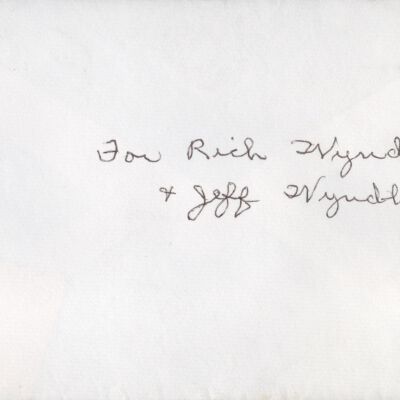 For Rich Wynd
& Jeff Wyndh